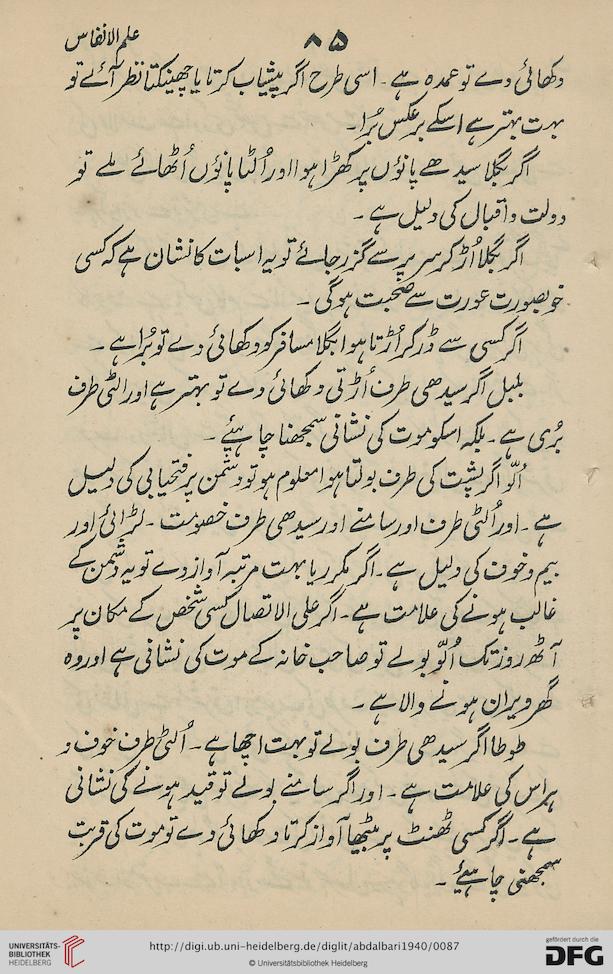 علم الانفاس
۸۵
دکھائی دے تو عمدہ ہے ۔ اسی طرح اگر پیشاب کرتا یا چھینکتا نظر آئے تو
بہت بہتر ہے اسکے برعکس بُرا۔
اگر بگلا سیدھے پاؤں پر کھڑا ہوا اور اُلٹا پاؤں اُٹھائے ملے تو
دولت و اقبال کی دلیل ہے ۔
اگر بگلا اُڑ کر سر پر سے گزر جائے تو یہ اسبات کا نشان ہے کہ کسی
خوبصورت عورت سے صحبت ہو گی ۔
اگر کسی سے ڈر کر اُڑتا ہوا بگلا مسافر کو دکھائی دے تو بُرا ہے ۔
بلبل اگر سیدھی طرف اُڑتی دکھائی دے تو بہتر ہے اور الٹی طرف
بُری ہے ۔ بلکہ اسکو موت کی نشانی سمجھنا چاہئیے ۔
اُلّو اگر پشت کی طرف بولتا ہوا معلوم ہو تو دشمن پر فتحیابی کی دلیل
ہے ۔ اور اُلٹی طرف اور سامنے اور سیدھی طرف خصومت ۔ لڑائی اور
بیم و خوف کی دلیل ہے ۔ اگر مکرر یا بہت مرتبہ آواز دے تو یہ دشمن کے
غالب ہونے کی علامت ہے ۔ اگر علی الاتصال کسی شخص کے مکان پر
آٹھ روز تک اُلّو بولے تو صاحب خانہ کے موت کی نشانی ہے اور وہ
گھر ویران ہونے والا ہے ۔
طوطا اگر سیدھی طرف بولے تو بہت اچھا ہے ۔ اُلٹی طرف خوف و
ہراس کی علامت ہے ۔ اور اگر سامنے بولے تو قید ہونے کی نشانی
ہے ۔ اگر کسی ٹھنٹ پر بیٹھا آواز کرتا دکھائی دے تو موت کی قربت
سمجھنی چاہئیے ۔
UNIVERSITÄTS-
BIBLIOTHEK
HEIDELBERG
http://digi.ub.uni-heidelberg.de/diglit/abdalbari1940/0087
© Universitätsbibliothek Heidelberg
gefördert durch die
DFG